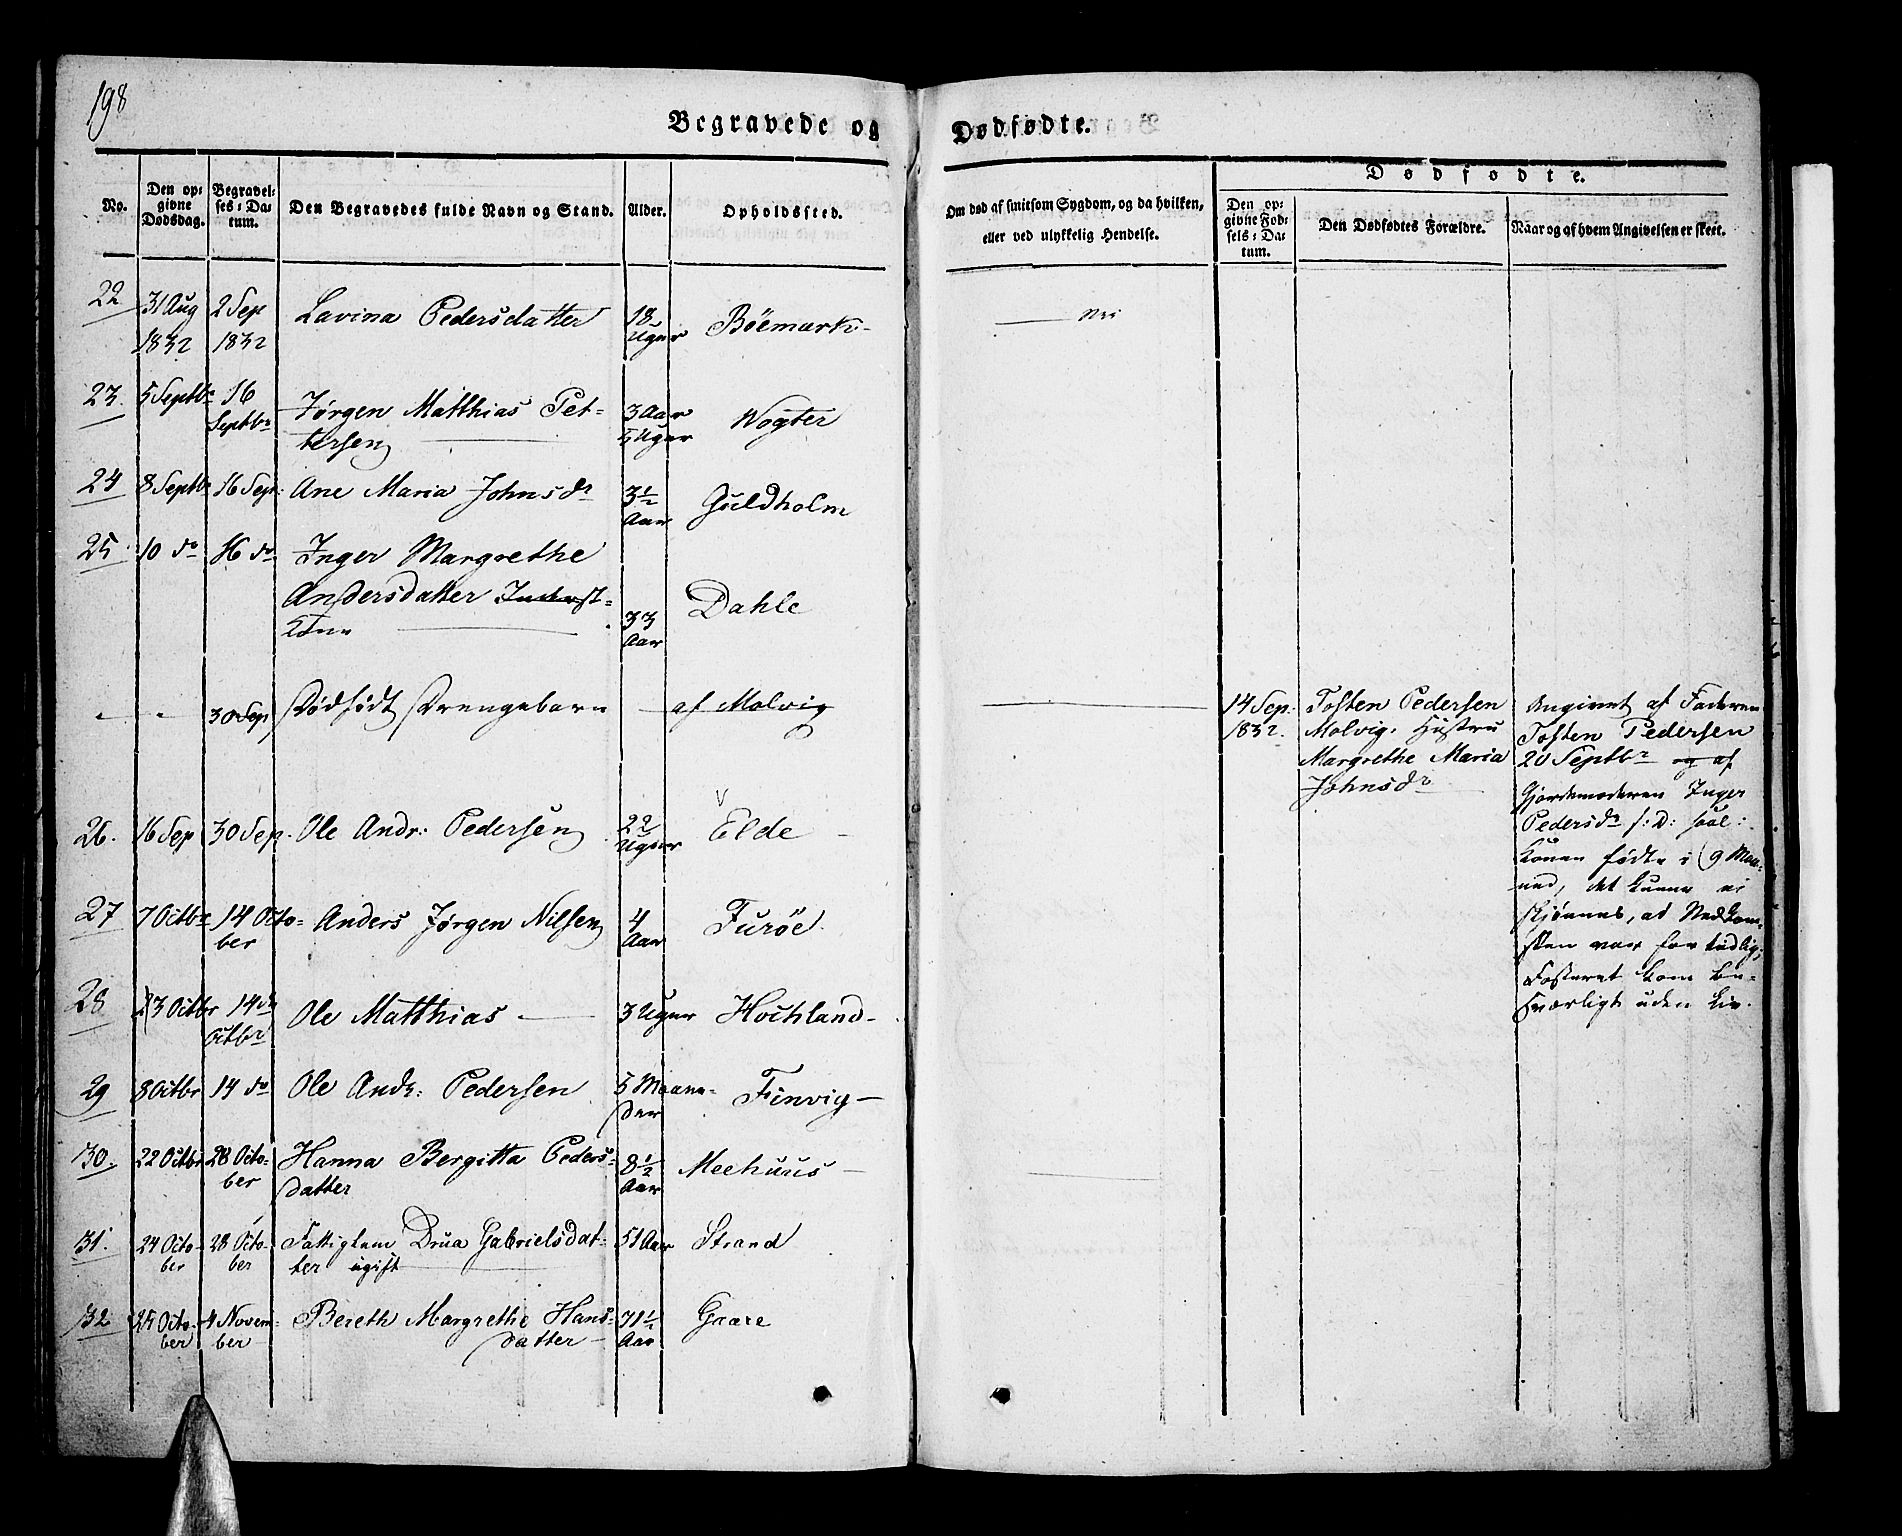 198
Begravede og Dødfødte.
No.
Den op=
givne
Dødsdag.
Begravel=
ses=Da=
tum.
Den Begravedes fulde Navn og Stand.
Alder.
Opholdssted.
Om død af smitsom Sygdom, og da hvilken,
eller ved ulykkelig Hendelse.
Dødfødte.
Den op=
givne Fød=
sels=Da=
tum.
Den Dødfødtes Forældre.
Naar og af hvem Angivelsen er skeet.
22
31 Aug
1832
2 Sep
1832
Lavina Pedersdatter
18
Uger
Böemark-
Nei
23.
5 Septbr
16
Septbr
Jørgen Matthias Pet=
tersen
3 Aar
5 Uger
Vogter
24
8 Septbr
16 Sep:
Ane Maria Johnsdr
3½
Aar
Guldholm
25
10 do
16 do
Inger Margrethe
Andersdatter Inderst=
kone
33
Aar
Dahle
30 Sep
Dødfødt Drengebarn
af Molvig
14 Sep:
1832.
Tosten Pedersen
Molvig. Hustru
Margrethe Maria
Johnsdr
Angivet af Faderen
Tosten Pedersen
20 Septbr og af
Gjordemoderen Inger
Pedersdr s: D: saal:
Konen fødte i 9 Maa=
ned, det kunne ei
skjønnes, at Nedkom=
sten var for tidlig;
Fosteret kom be=
sværligt uden Liv.
26.
16 Sep
30 Sep.
Ole Andr: Pedersen
22
Uger
V
Elde
27
7 Octbr
14 Octo=
ber
Anders Jørgen Nilsen
4
Aar
Furöe.
28
3 Octbr
14de
Octbr
Ole Matthias
3 Uger
Hochland-
29
8 Octbr
14 do
Ole Andr: Pedersen
5 Maane=
der
Finvig-
30.
22 Octbr
28 Octo=
ber
Hanna Bergitta Peders=
datter
8½
Aar
Meehuus
31.
24 Octo=
ber
28 Octo=
ber
Fattiglem Drua Gabrielsdat=
ter ugift
51 Aar
Strand
32
25 Octo=
ber
4 Novem=
ber
Bereth Margrethe Hans=
datter
71½
Aar
Graae